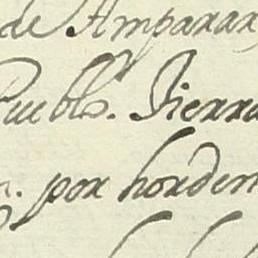 de Amparar
Pueblo. Tierra
por horden